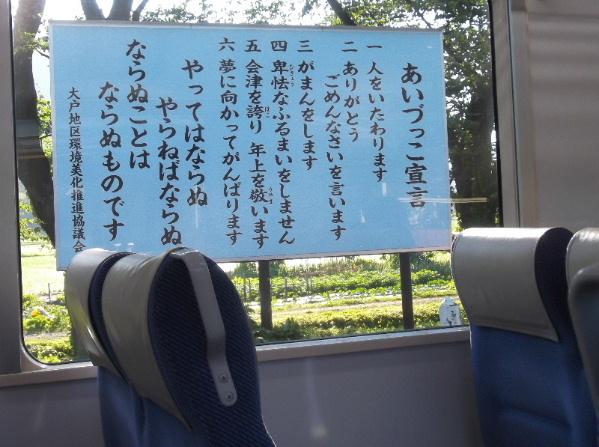 あいづっこ宣言
一 人をいたわります
二 ありがとう
ごめんなさいを言います
三 がまんをします
四 卑怯なふるまいをしません
五 会津を誇り 年上を敬います
六 夢に向かってがんばります
やってはならぬ
やらねばならぬ
ならぬことは
ならぬものです
大戸地区環境美化推進協議会